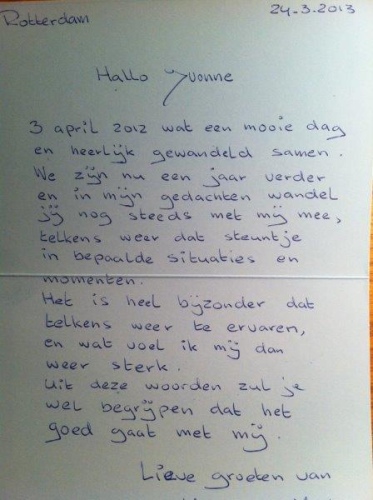 Rotterdam
24-3.2013
Hallo Yvonne
3 april 2012 wat een mooie dag
en heerlijk gewandeld samen.
We zijn nu een jaar verder
en in mijn gedachten wandel
jij nog steeds met mij mee,
telkens weer dat steuntje
in bepaalde situaties en
momenten.
Het is heel bijzonder dat
telkens weer te ervaren,
en wat voel ik mij dan
weer sterk.
Uit deze woorden zul je
wel begrijpen dat het
goed gaat met mij.
Lieve groeten van